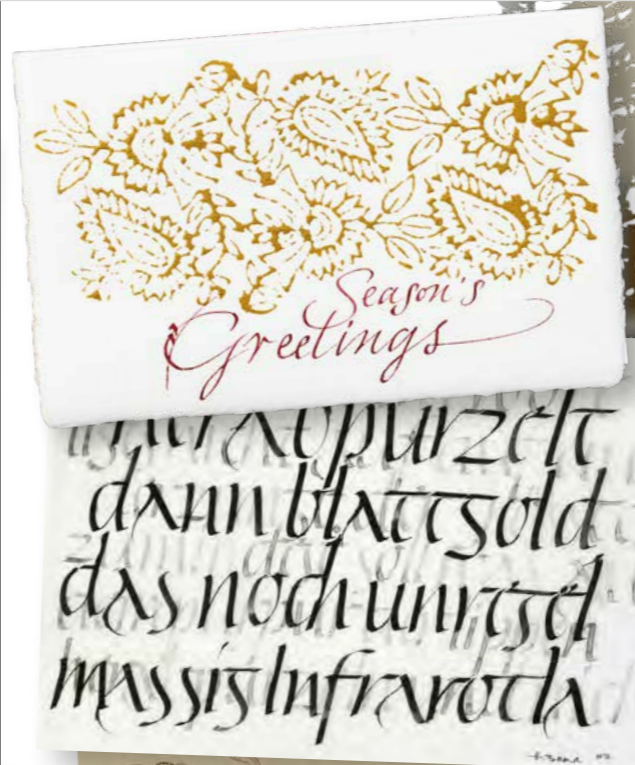 Season's
Greetings
purzelt
dann blattgold
das noch unregel
massig Infrarotla